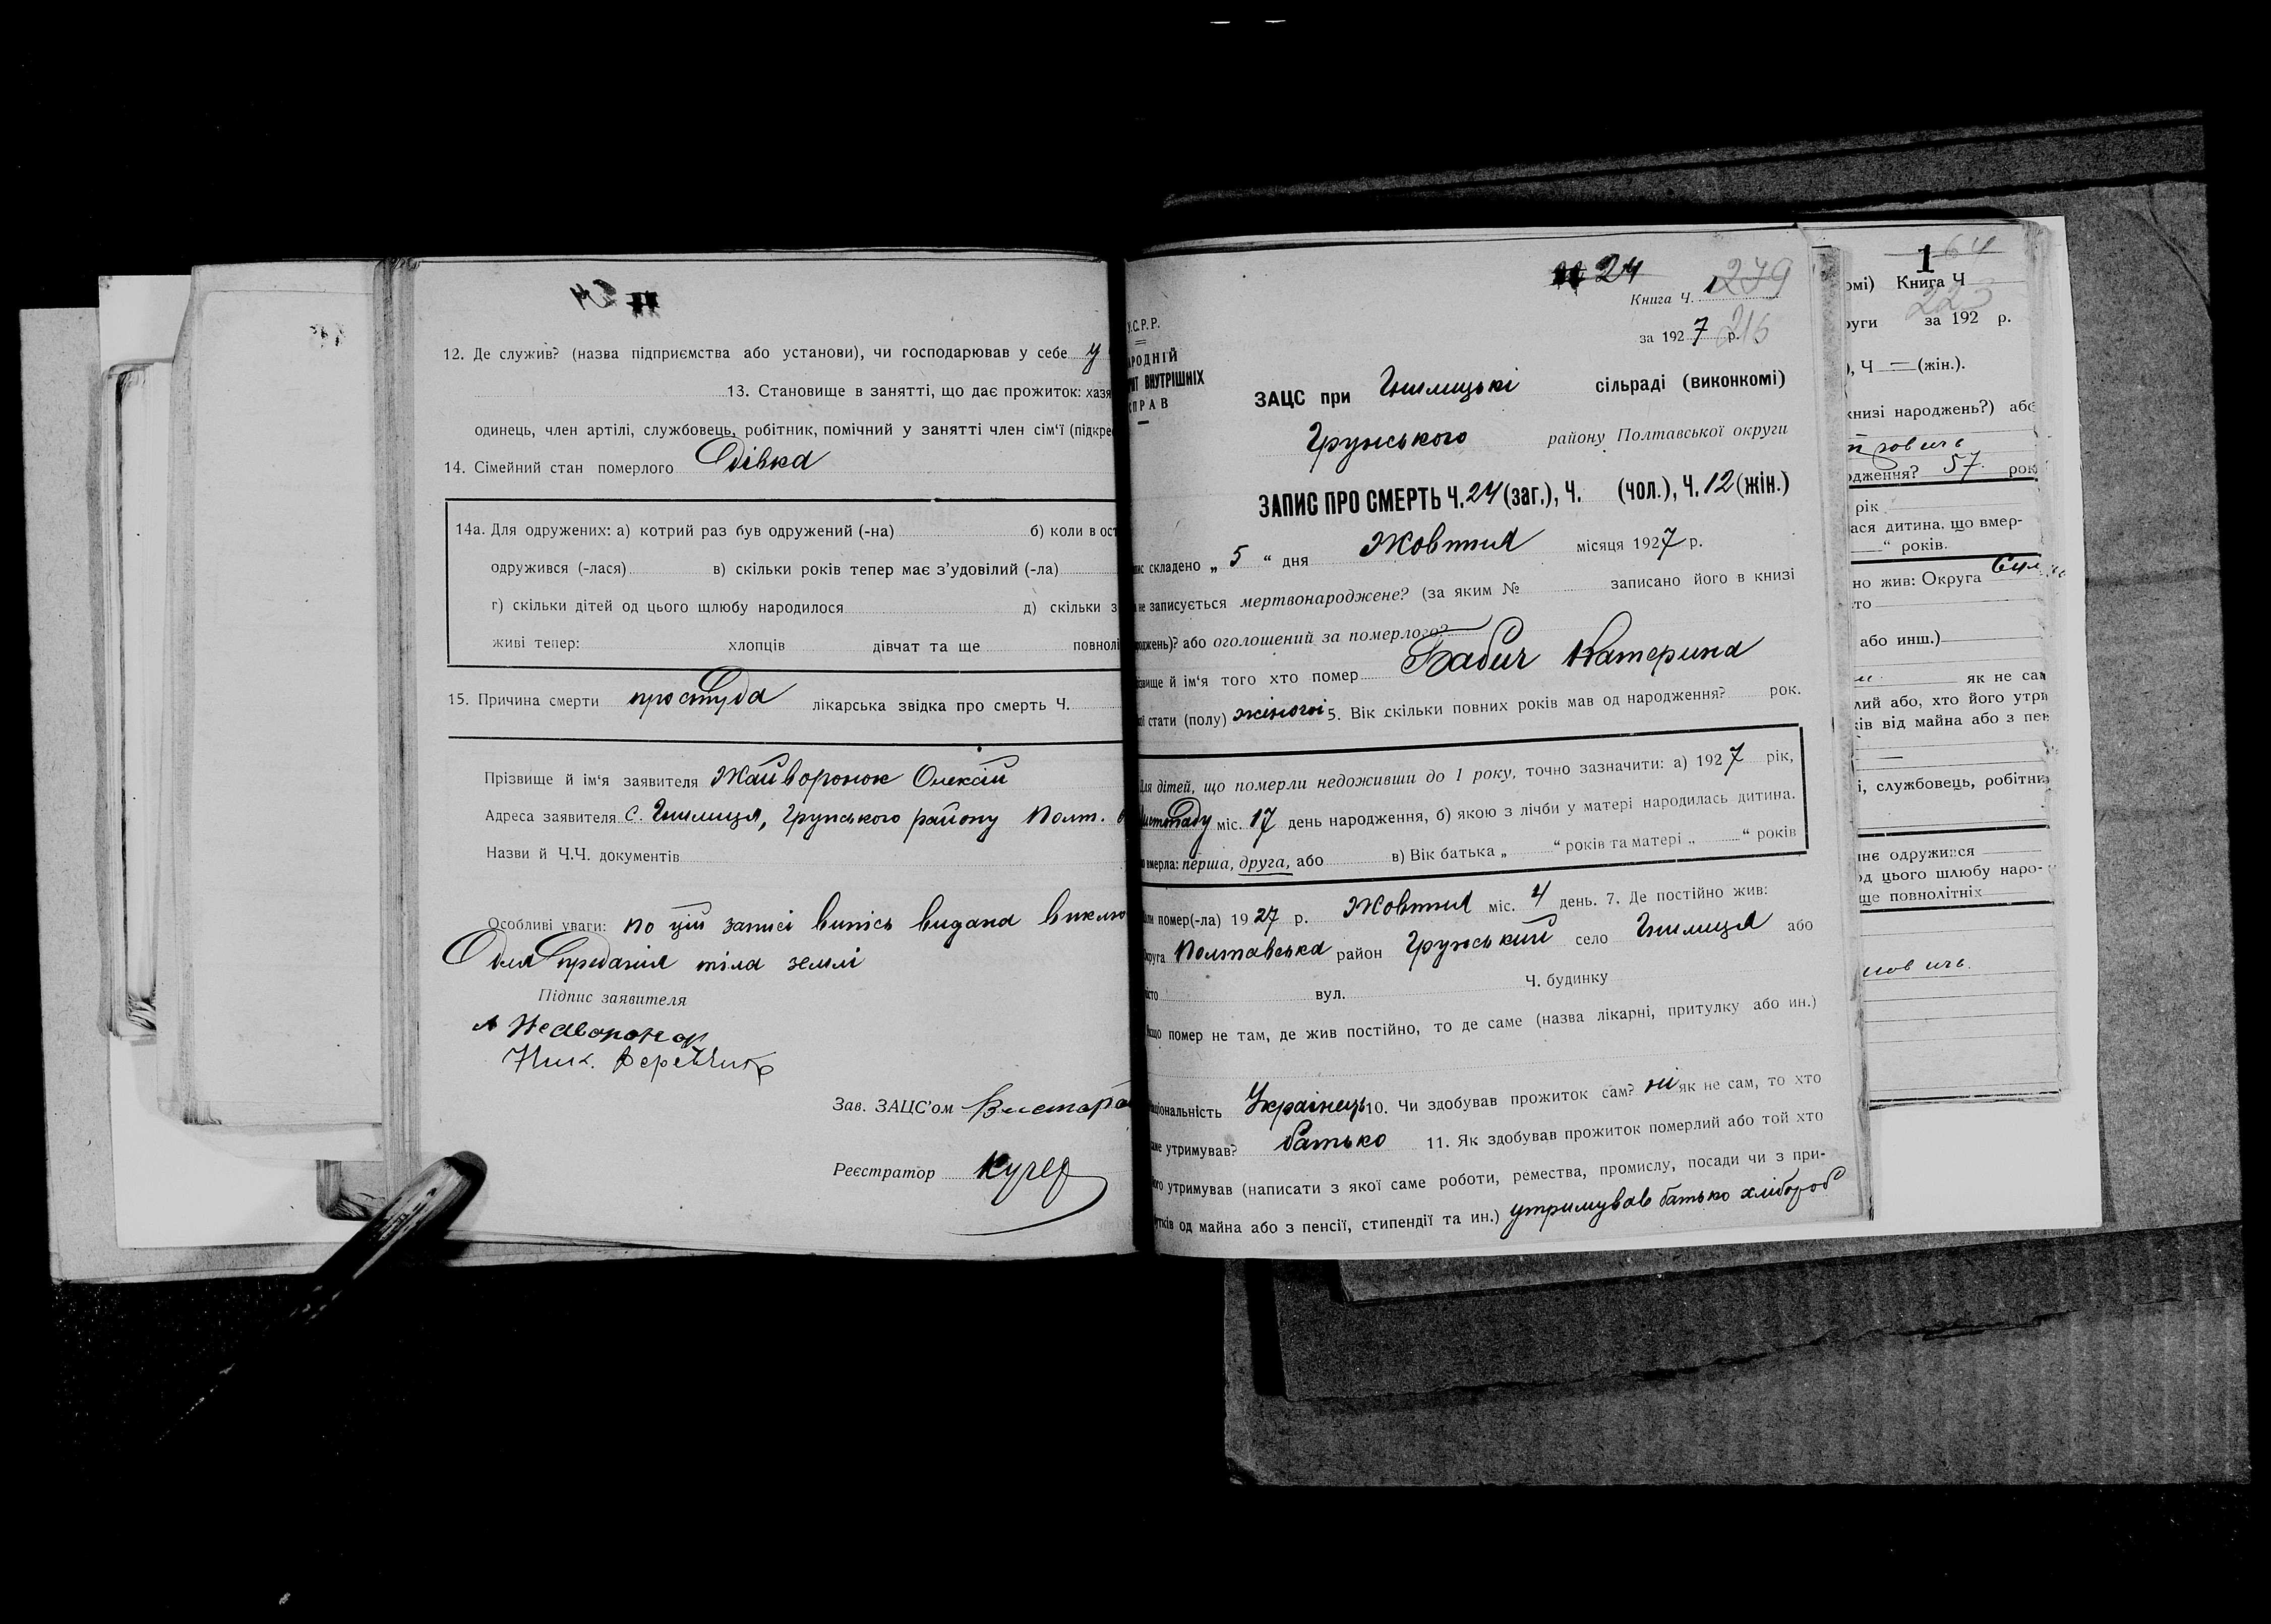 № 24
12. Де служив? (назва підприємства або установи), чи господарював у себе у
13. Становище в занятті, що дає прожиток: хазя
одинець, член артілі, службовець, робітник, помічний у занятті член сім'ї (підкре
14. Сімейний стан померлого Дівка
14а. Для одружених: а) котрий раз був одружений (-на) б) коли в ост
одружився (-лася) в) скільки років тепер має з'удовілий (-ла)
г) скільки дітей од цього щлюбу народилося д) скільки з
живі тепер: хлопців дівчат та ще повнолі
15. Причина смерти простуда лікарська звідка про смерть Ч.
Прізвище й ім'я заявителя Жайворонок Олексій
Адреса заявителя с. Гнилиця, Грунського району Полт.
Назви й Ч.Ч. документів
Особливі уваги: по цій записі випісь видана виклю
для предания тіла землі
Підпис заявителя
А Жаворонок
Зав. ЗАЦС'ом
Реєстратор Кучер
№ 24 279
Книга Ч. 1
за 1927 р. 216
У.С.Р.Р.
АРОДНІЙ
РІЯТ ВНУТРІШНІХ
СПРАВ
ЗАЦС при Гнилицькі сільраді (виконкомі)
Грунського району Полтавської округи
ЗАПИС ПРО СМЕРТЬ Ч. 24 (заг.), Ч. (чол.), Ч. 12 (жін.)
пис складено „ 5 “ дня Жовтня місяця 1927 р.
не записується мертвонароджене? (за яким № записано його в книзі
роджень)? або оголошений за померлого?
ізвище й ім'я того хто помер Бабич Катерина
ої стати (полу) жіночої 5. Вік скільки повних років мав од народження? рок.
Для дітей, що померли недоживши до 1 року, точно зазначити: а) 1927 рік,
листопаду міс. 17 день народження, б) якою з лічби у матері народилась дитина.
о вмерла: перша, друга, або в) Вік батька „ “ років та матері „ “ років
оли помер(-ла) 1927 р. Жовтня міс. 4 день. 7. Де постійно жив:
Округа Полтавська район Грунський село Гнилиця або
істо вул. Ч. будинку
Якщо помер не там, де жив постійно, то де саме (назва лікарні, притулку або ин.)
аціональність Українець 10. Чи здобував прожиток сам? ні як не сам, то хто
аме утримував? батько 11. Як здобував прожиток померлий або той хто
ого утримував (написати з якої саме роботи, ремества, промислу, посади чи з при-
утків од майна або з пенсії, стипендії та ин.) утримував батько хлібороб
1 64
омі) Книга Ч
223
руги за 192 р.
), Ч — (жін.).
книзі народжень?) або
одження? 57 рок
рік
ася дитина, що вмер-
“ років.
но жив: Округа
то
або инш.)
як не сам
лий або, хто його утри
ків від майна або з пен
і, службовець, робітни
нє одружився
од цього шлюбу наро-
ще повнолітніх